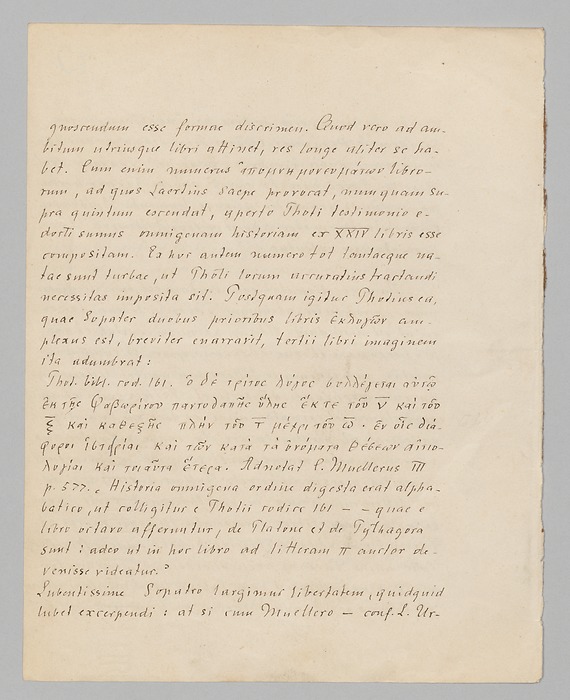 gnoscendum esse formae discrimen. Quod vero ad am-
bitum utriusque libri attinet, res longe aliter se ha-
bet. Cum enim numerus ἀπομνημονευμάτων libro-
rum, ad quos Laertius saepe provocat, numquam su-
pra quintum escendat, aperto Photi testimonio e-
docti sumus omnigenam historiam ex XXIV libris esse
compositam. Ex hoc autem numero tot tantaeque na-
tae sunt turbae, ut Photi locum accuratius tractandi
necessitas imposita sit. Postquam igitur Photius ea,
quae Sopater duobus prioribus libris ἐκλογῶν am-
plexus est, breviter enarravit, tertii libri imaginem
ita adumbrat:
Phot. bibl. cod. 161. ὁ δὲ τρίτος λόγος συλλέγεται αὐτῷ
ἐκ τῆς Φαβωρίνου παντοδαπῆς ὕλης ἔκ τε τοῦ ν̄ καὶ τοῦ
ξ̄ καὶ καθεξῆς πλὴν τοῦ τ̄ μέχρι τοῦ ω̄ · ἐν οἷς διά-
φοροι ἱστορίαι καὶ τῶν κατὰ τὰ ὀνόματα θέσεων αἰτιο-
λογίαι καὶ τοιαῦτα ἕτερα. Adnotat C. Muellerus III
p. 577. „Historia omnigena ordine digesta erat alpha-
batico, ut colligitur e Photii codice 161 — — quae e
libro octavo afferuntur, de Platone et de Pythagora
sunt: adeo ut in hoc libro ad litteram π auctor de-
venisse videatur."
Lubentissime Sopatro largimur libertatem, quidquid
lubet excerpendi: at si cum Muellero — conf. L. Ur-